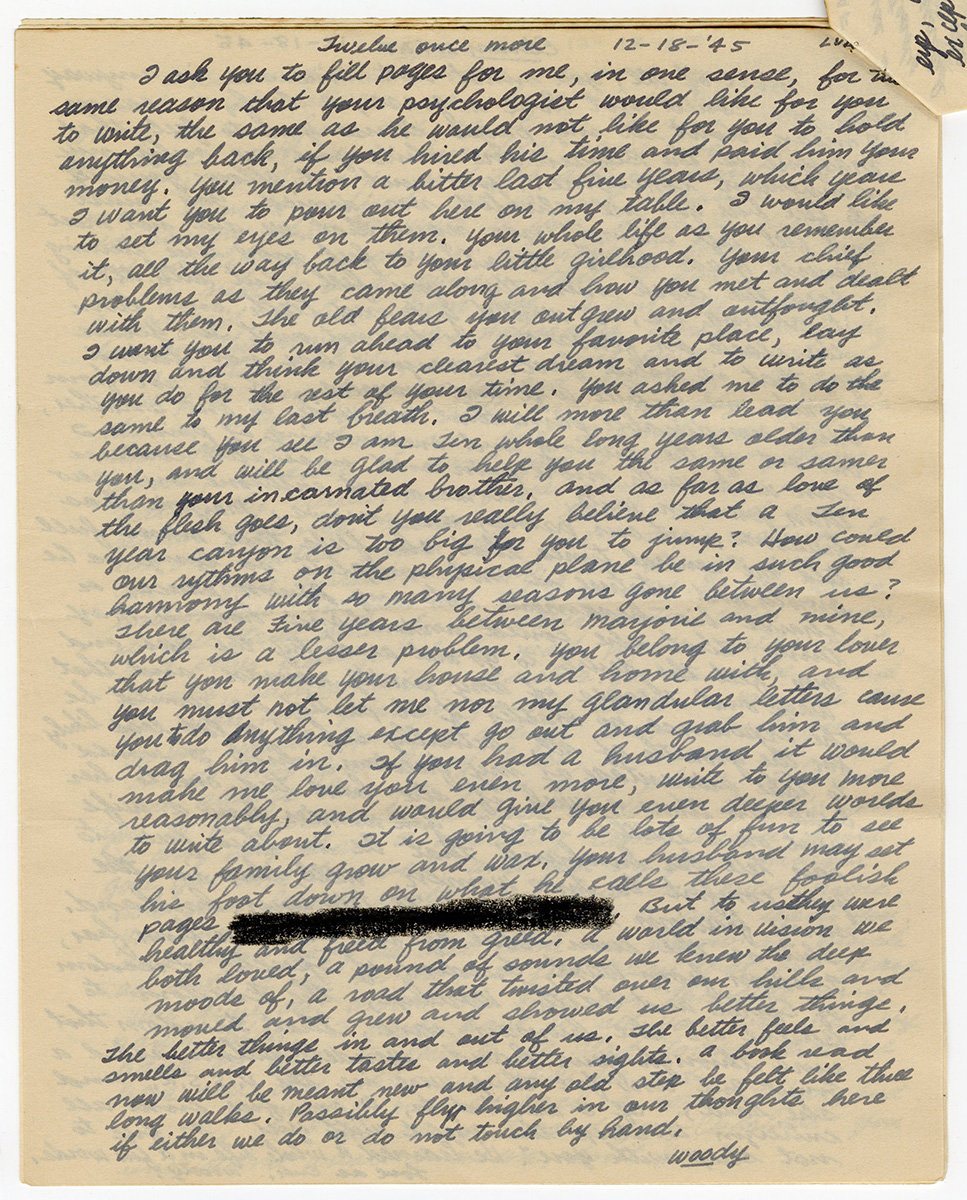 Twelve once more 12-18-'45
I ask you to fill pages for me, in one sense, for the
same reason that your psychologist would like for you
to write, the same as he would not like for you to hold
anything back, if you hired his time and paid him your
money. You mention a bitter last five years, which years
I want you to pour out here on my table. I would like
to set my eyes on them. Your whole life as you remember
it, all the way back to your little girlhood. Your chief
problems as they came along and how you met and dealt
with them. The old fears you outgrew and outfought.
I want you to run ahead to your favorite place, lay
down and think your clearest dream and to write as
you do for the rest of your time. You asked me to do the
same to my last breath. I will more than lead you
because you see I am Ten whole long years older than
you, and will be glad to help you the same or samer
than your incarnated brother. And as far as love of
the flesh goes, don't you really believe that a Ten
year canyon is too big for you to jump? How could
our rythms on the physical plane be in such good
harmony with so many seasons gone between us?
There are Five years between Marjorie and mine,
which is a lesser problem. You belong to your lover
that you make your house and home with, and
you must not let me nor my glandular letters cause
you to do anything except go out and grab him and
drag him in. If you had a husband it would
make me love you even more, write to you more
reasonably, and would give you even deeper worlds
to write about. It is going to be lots of fun to see
your family grow and wax. Your husband may set
his foot down on what he calls these foolish
pages . But to us they were
healthy and freed from greed. A world in vision we
both loved, a pound of sounds we knew the deep
moods of, a road that twisted over our hills and
moved and grew and showed us better things.
The better things in and out of us. The better feels and
smells and better tastes and better sights. A book read
now will be meant new and any old step be felt like three
long walks. Possibly fly higher in our thoughts here
if either we do or do not touch by hand.
Woody